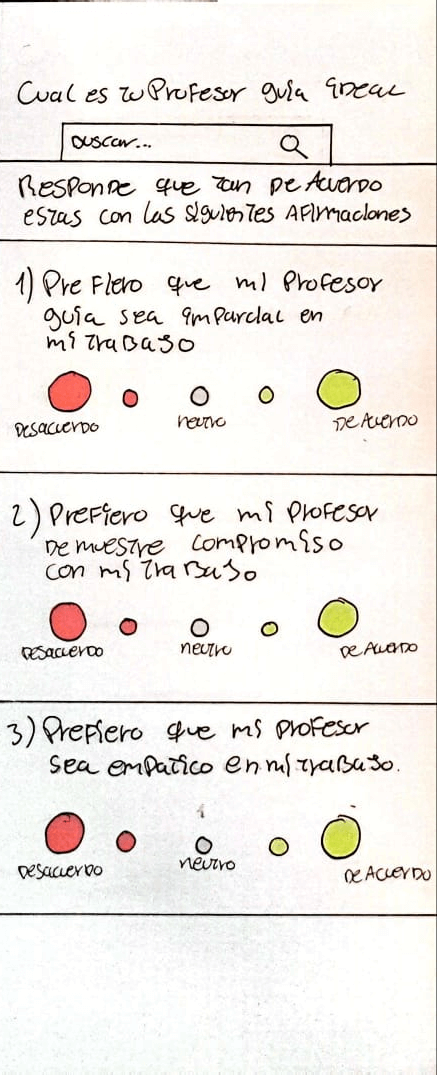 Cual es tu Profesor guía ideal
Buscar...
Responde que tan De Acuerdo
estas con las siguientes Afirmaciones
1) Prefiero que mi Profesor
guía sea imparcial en
mi trabajo
Desacuerdo neutro De Acuerdo
2) Prefiero que mi Profesor
Demuestre compromiso
con mi trabajo
Desacuerdo neutro De Acuerdo
3) Prefiero que mi profesor
sea empatico en mi trabajo.
Desacuerdo neutro De Acuerdo